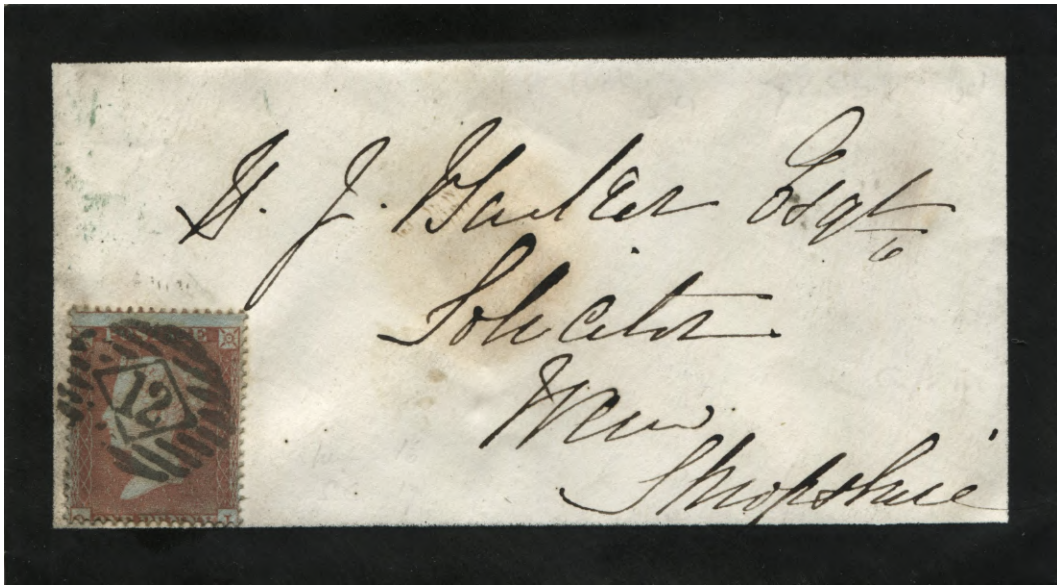 H. J. Barker Esqre
Solicitor
Wem
Shropshire
12